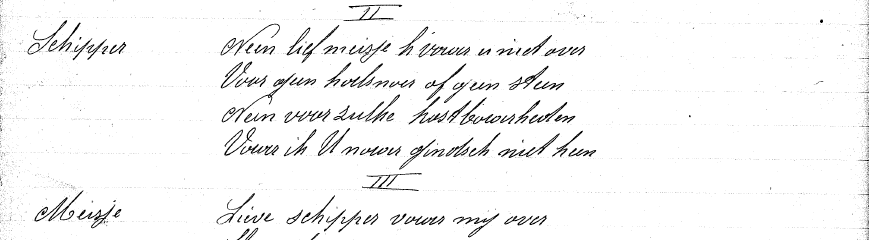 II
Schipper Nein lief meisje k'vower u niet over
Voor geen halsnoer of geen steen
Nein voor zulke kostbowerheden
Vower ik U nower gindsch niet heen
III
Meisje Lieve schipper vower mij over